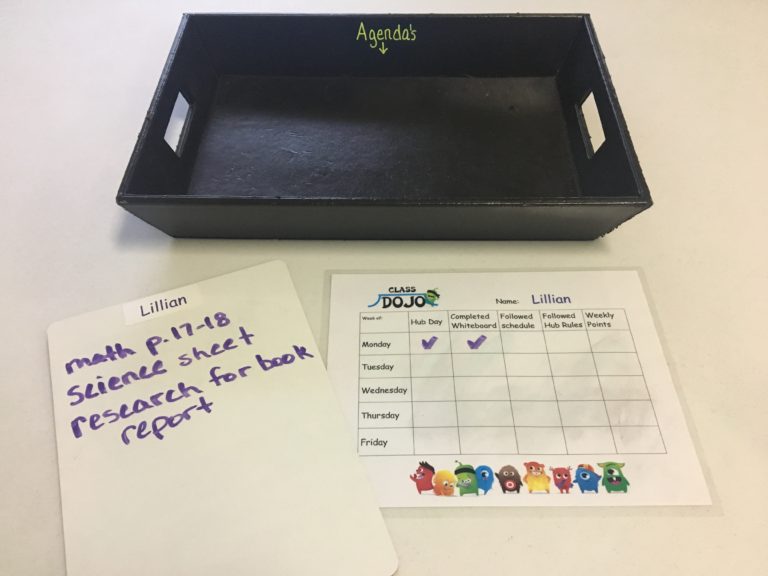 Agenda's
↓
Lillian
math p.17-18
science sheet
research for book
report
CLASS
DOJO
Name: Lillian
Week of:
Hub Day
Completed
Whiteboard
Followed
schedule
Followed
Hub Rules
Weekly
Points
Monday ✓ ✓
Tuesday
Wednesday
Thursday
Friday